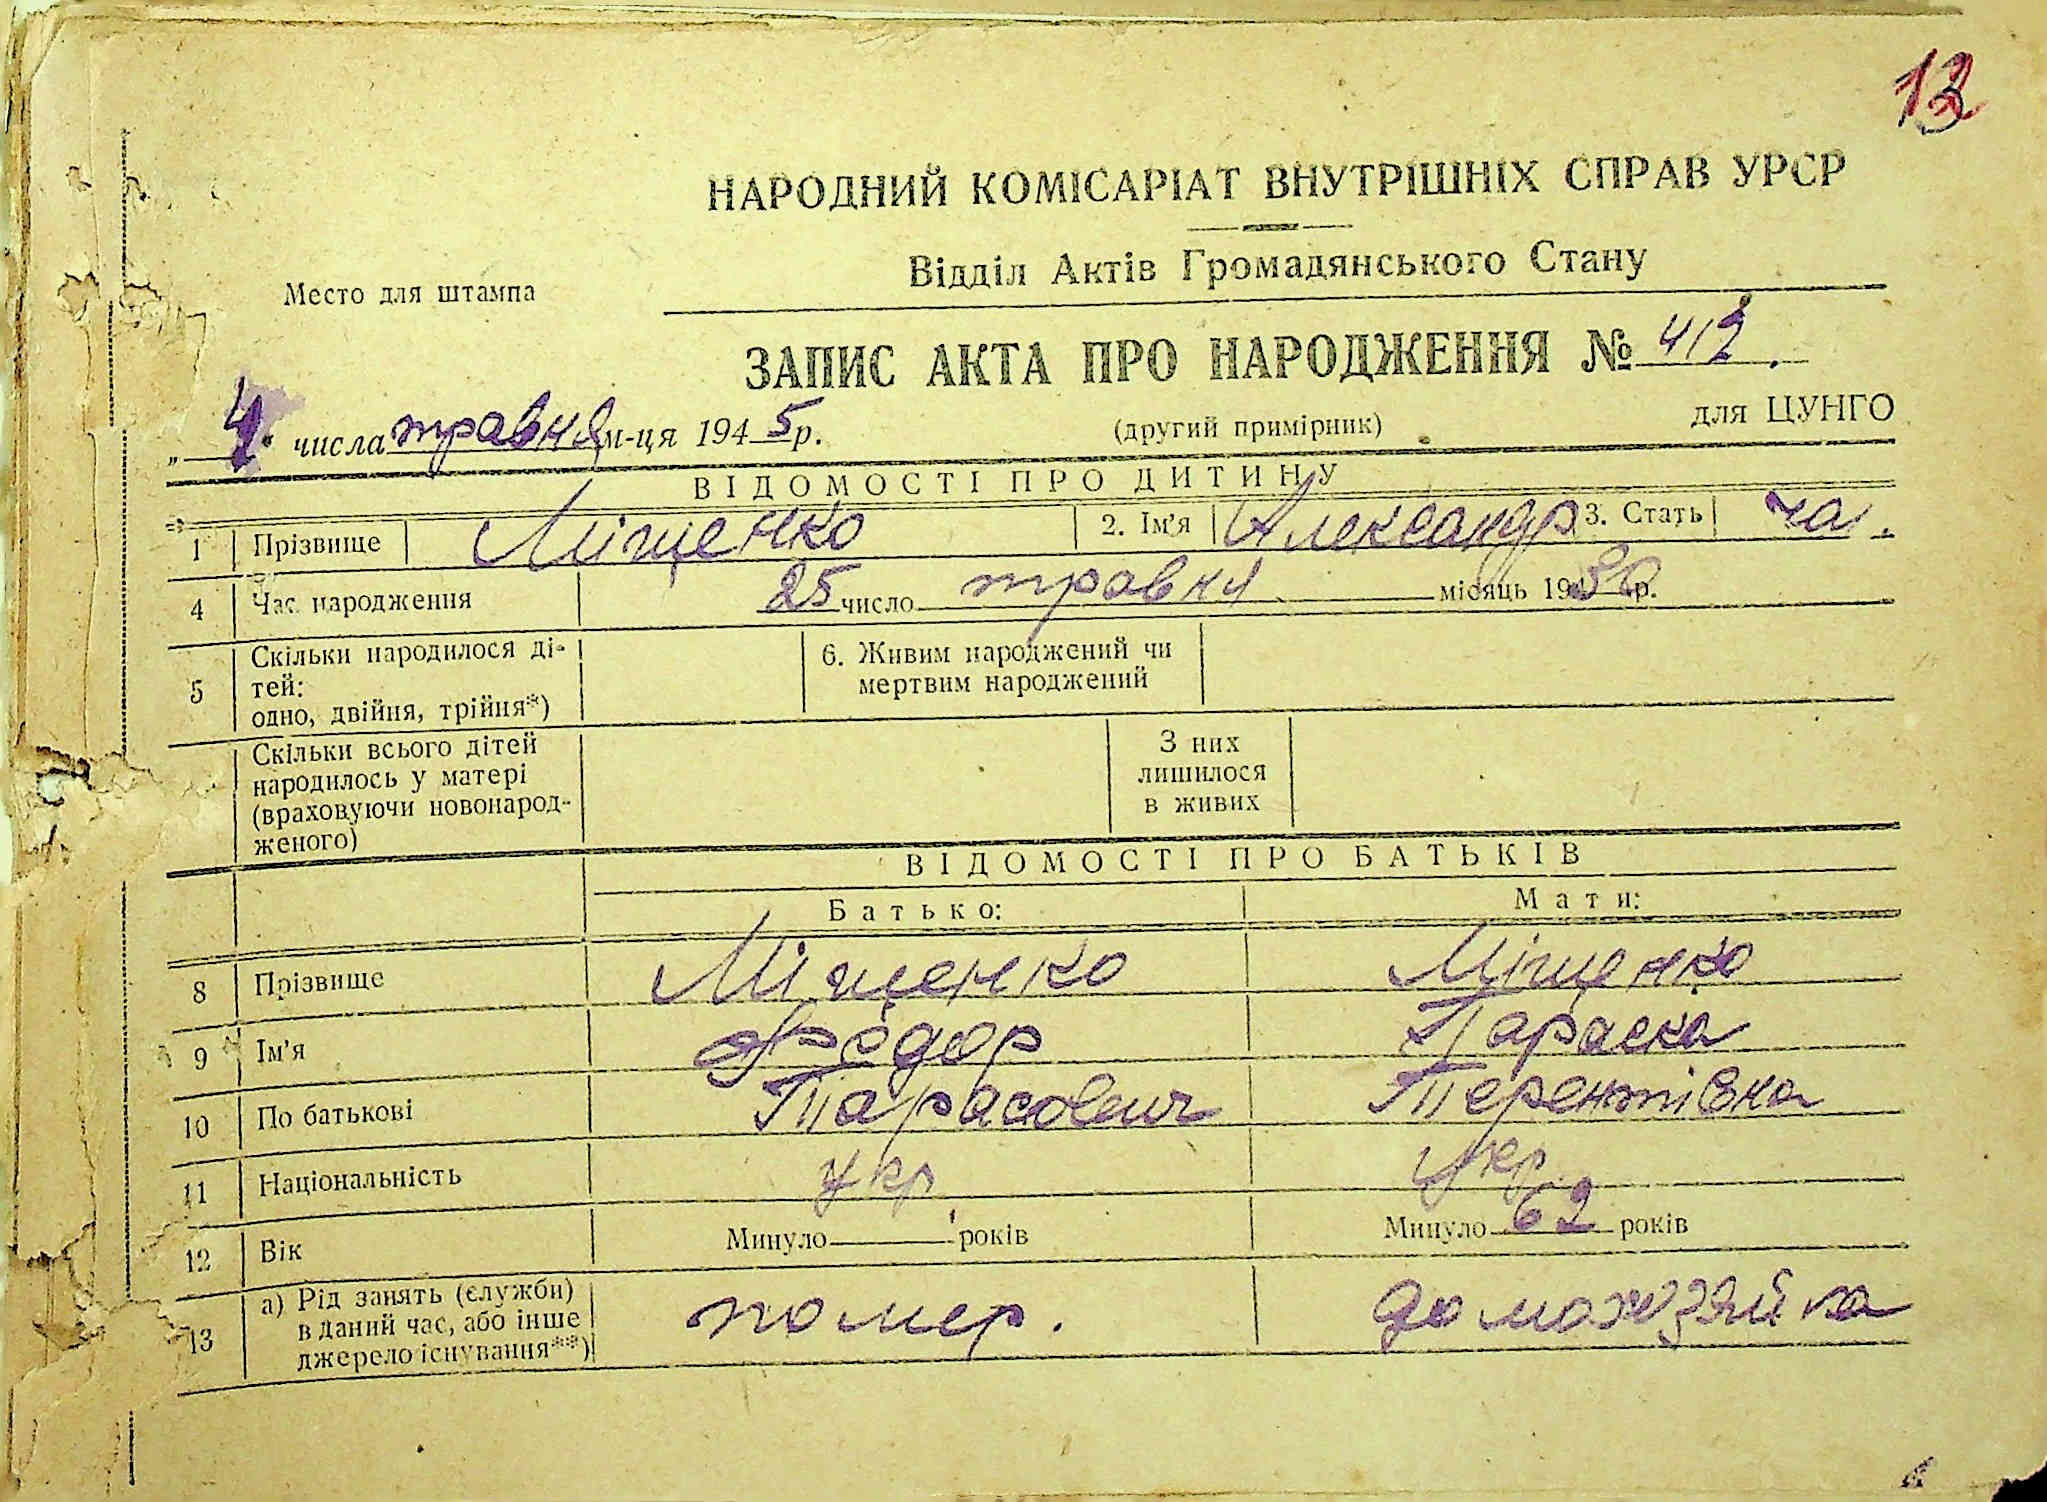 13
НАРОДНИЙ КОМІСАРІАТ ВНУТРІШНІХ СПРАВ УРСР
Відділ Актів Громадянського Стану
Место для штампа
ЗАПИС АКТА ПРО НАРОДЖЕННЯ № 412.
„4“ числа травня м-ця 1945 р.
(другий примірник)
для ЦУНГО
ВІДОМОСТІ ПРО ДИТИНУ
1 Прізвище Міщенко 2. Ім'я Александр 3. Стать ча.
4 Час народження 25 число травня місяць 1930 р.
5 Скільки народилося ді-
тей:
одно, двійня, трійня*)
6. Живим народжений чи
мертвим народжений
Скільки всього дітей
народилось у матері
(враховуючи новонарод-
женого)
З них
лишилося
в живих
ВІДОМОСТІ ПРО БАТЬКІВ
Батько: Мати:
8 Прізвище Міщенко Міщенко
9 Ім'я Фёдор Параска
10 По батькові Тарасович Терентівна
11 Національність укр укр
12 Вік Минуло років Минуло 62 років
13 а) Рід занять (служби)
в даний час, або інше
джерело існування**)
помер. домохозяйка